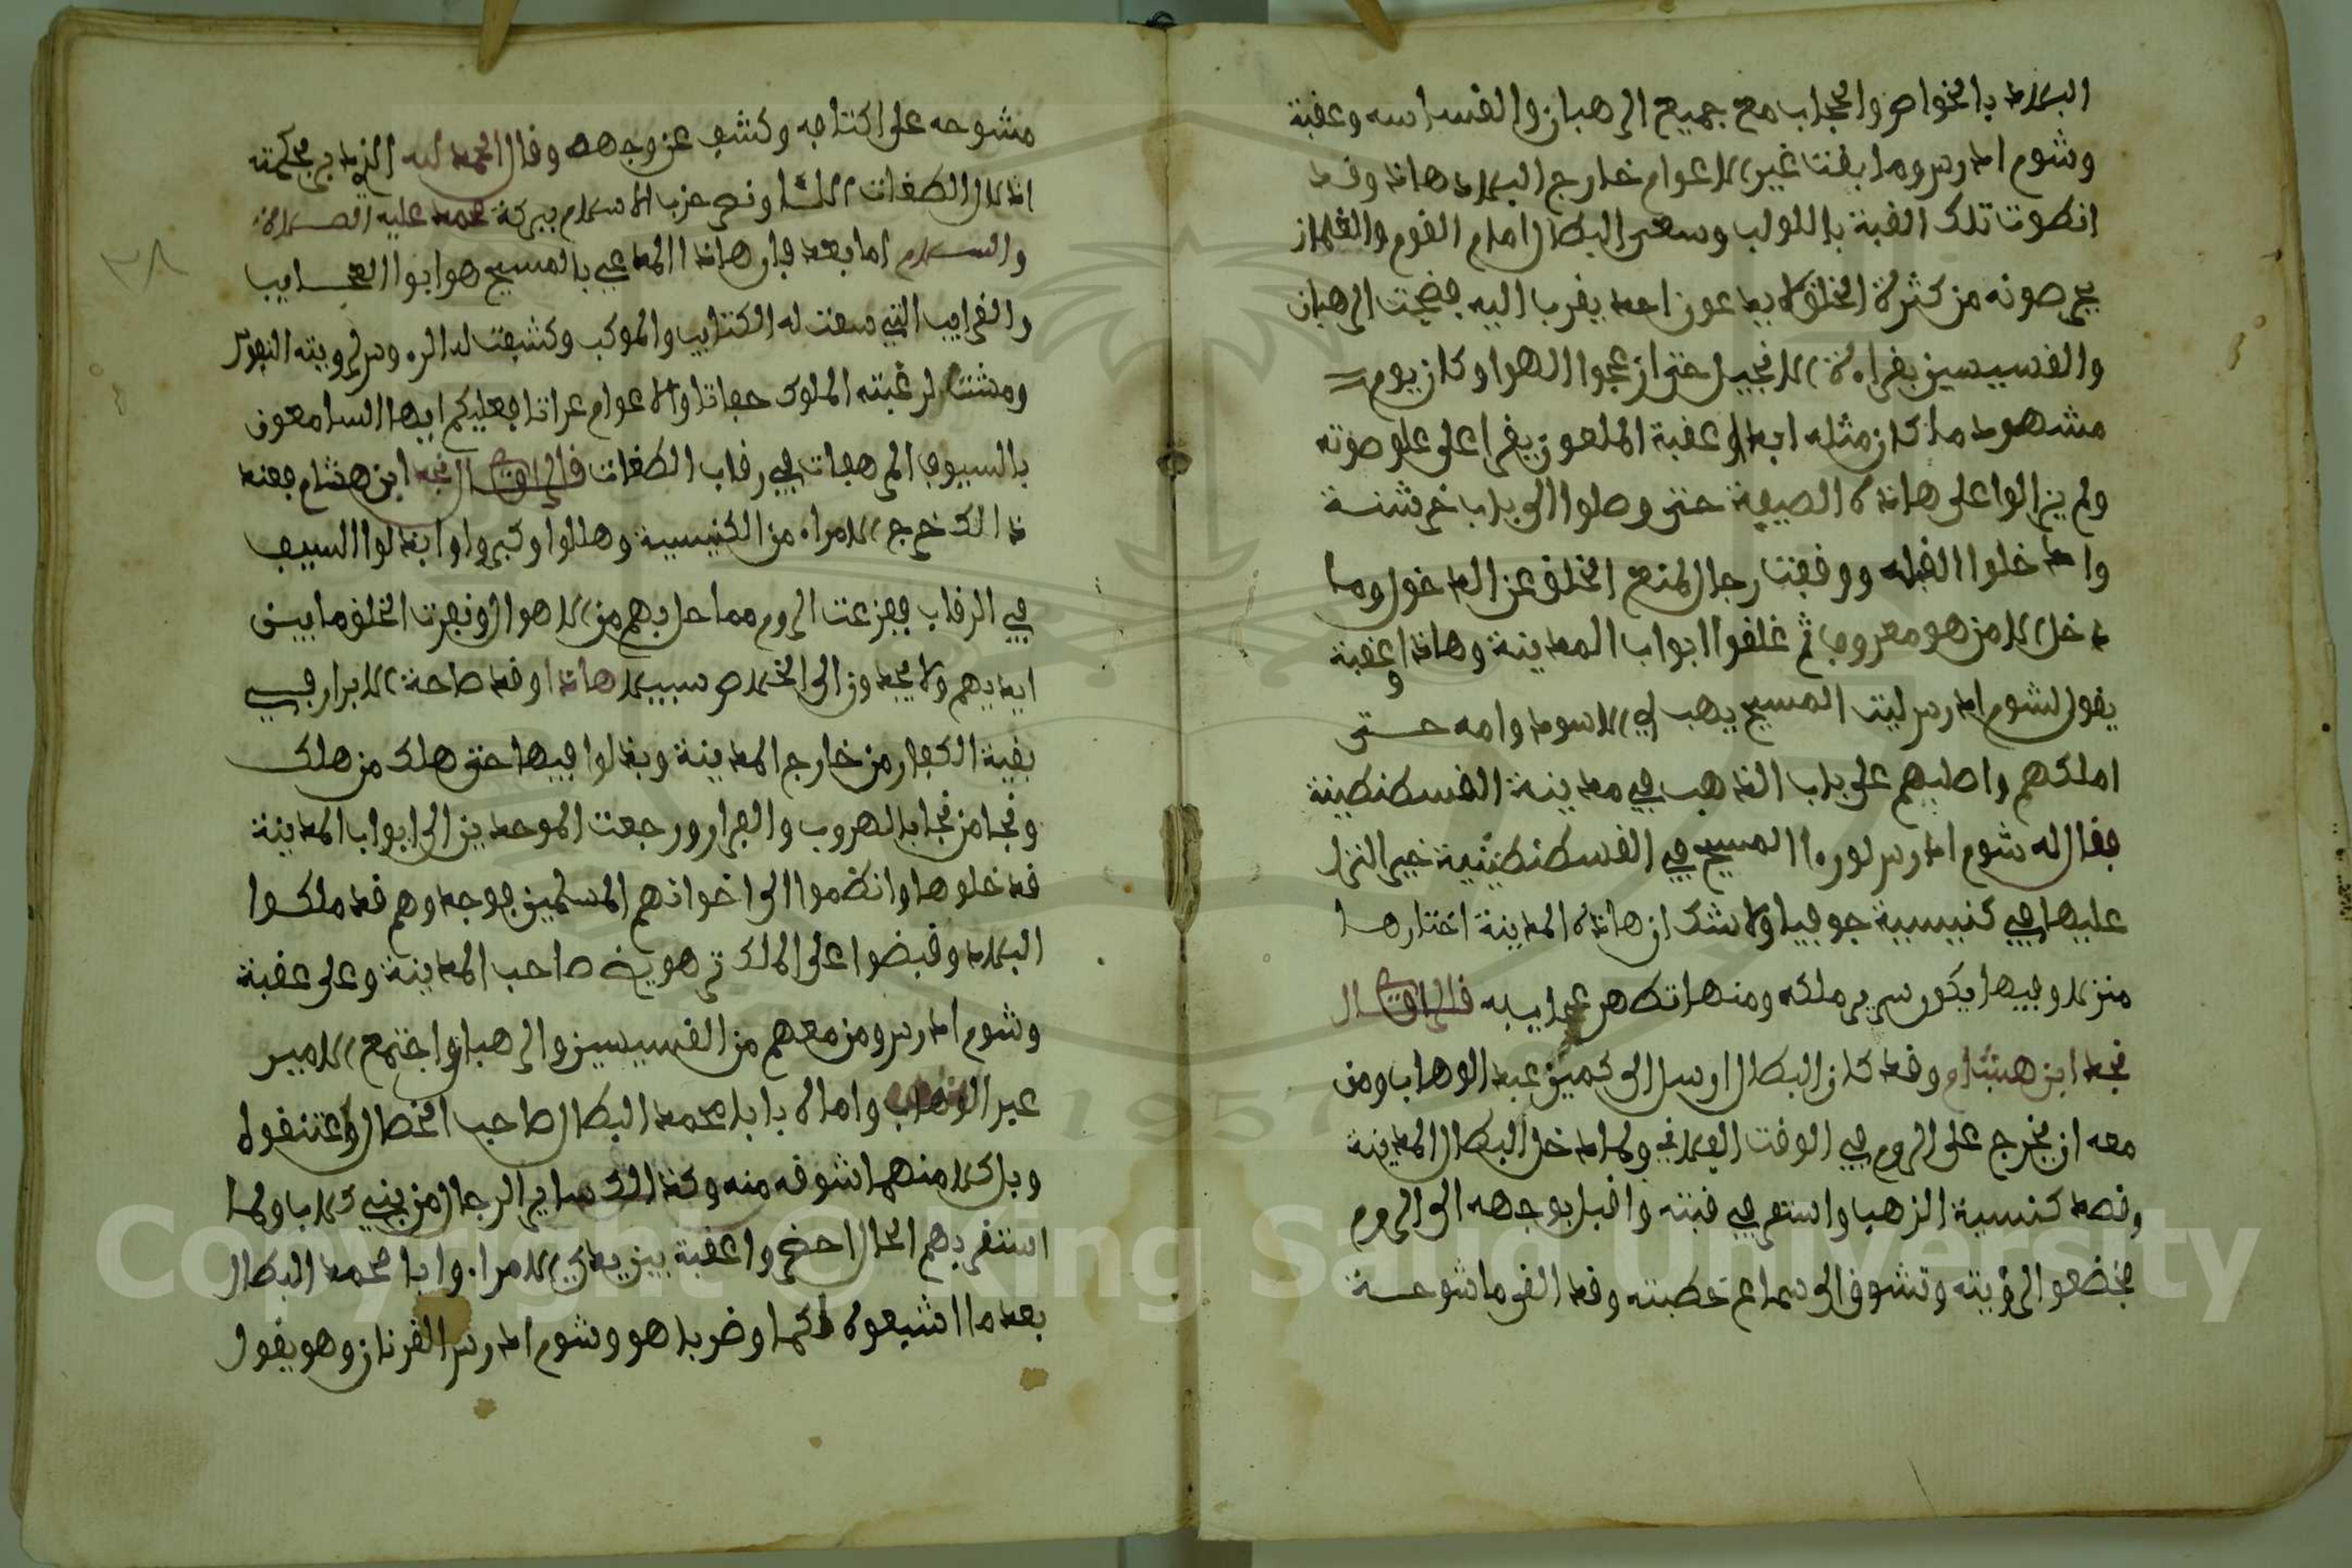 البلاد بالخواص والحجاب مع جميع الرهبان والقساسه وعقبة
وشوم ادرس وما بقت غير الاعوام خارج البلاد هاذا وقد
انطوت تلك القبة باللولب وسعى البطال امام القوم والقماز
يجر صوته من كثرة الخلق لا يدعون احد يقرب اليه فضجت الرهبان
والقسيسين بقراءة الانجيل حتى ازعجوا الهوا وكان يوم
مشهود ما كان مثله ابدا وعقبة الملعون يقرا على علو صوته
ولم يزالوا على هاذه الصيفة حتى وصلوا الى باب خرشنة
وادخلوا القبله ووقفت رجال لمنع الخلق عن الدخول وما
دخل الا من هو معروف ثم غلقوا ابواب المدينة وهاذا وعقبة
يقول لشوم ادرس ليت المسيح يهب لي الاسود وامه حتى
املكهم واصلبهم على باب الذهب في مدينة القسطنطينة
فقال له شوم ادرس لوراا المسيح في القسطنطينية خير النزل
عليها في كنيسية جوفيا ولا شك ان هاذه المدينة اختارها
منزلا وفيها يكون سرير ملكه ومنها تظهر عجايبه قال الراوي قال
نجد ابن هشام وقد كان البطال ارسل الى كمين عبد الوهاب ومن
معه ان يخرج على الروم في الوقت الفلاني ولما دخل البطال المدينة
وقصد كنسية الزهب واستقر في قبته واقبل بوجهه الى الروم
فخضعوا الى رؤيته وتشوق الى سماع خطبته وقد القى ماشوحسة
مشوحه على اكتافه وكشف عن وجهه وقال الحمد لله الذي بحكمته
اذلال الطغات اللئا ونصر حزب الاسلام ببركة محمد عليه الصلاة
والسلام اما بعد فان هاذا المدعي بالمسيح هو ابوا العجايب
والغرايب التي سعت له الكتايب والموكب وكشفت لدا الره وس لرويته النعول
ومشت لرغبته الملوك حفاتا والاعوام عراتا فعليكم ايها السامعون
بالسيوف المرهفات في رقاب الطغات قال الراوي قال نجد ابن هشام فعند
ذالك خرج الامراء من الكنيسية وهللوا وكبروا وابذلوا السيف
في الرقاب ففزعت الروم مما حل بهم من الاهوال ونفرت الخلق ما بين
ايديهم ولا يجدون الى الخلاص سبيلا هاذا وقد صاحة الابرار في
بقية الكفار من خارج المدينة وبذلوا فيها حتى هلك من هلك
ونجا من نجا بالهروب والفرار ورجعت الموحدين الى ابواب المدينة
فدخلوها وانظموا الى اخوانهم المسلمين فوجدوهم قد ملكوا
البلاد وقبضوا على الملك ترهويخ صاحب المدينة وعلى عقبة
وشوم ادرس ومن معهم من القسيسين والرهبان واجتمع الامير
عبد الوهاب واماله بابا محمد البطال صاحب الخطال واعتنقوه
وبل كلا منهما شوقه منه وكذالك ساير الرجال من بني كلاب ولما
استقر بهم الحال احضروا عقبة بين يدي الامراء وابا محمد البطال
بعد ما اشبعوه لكما وضربا هو وشوم ادرس القرنان وهو يقول